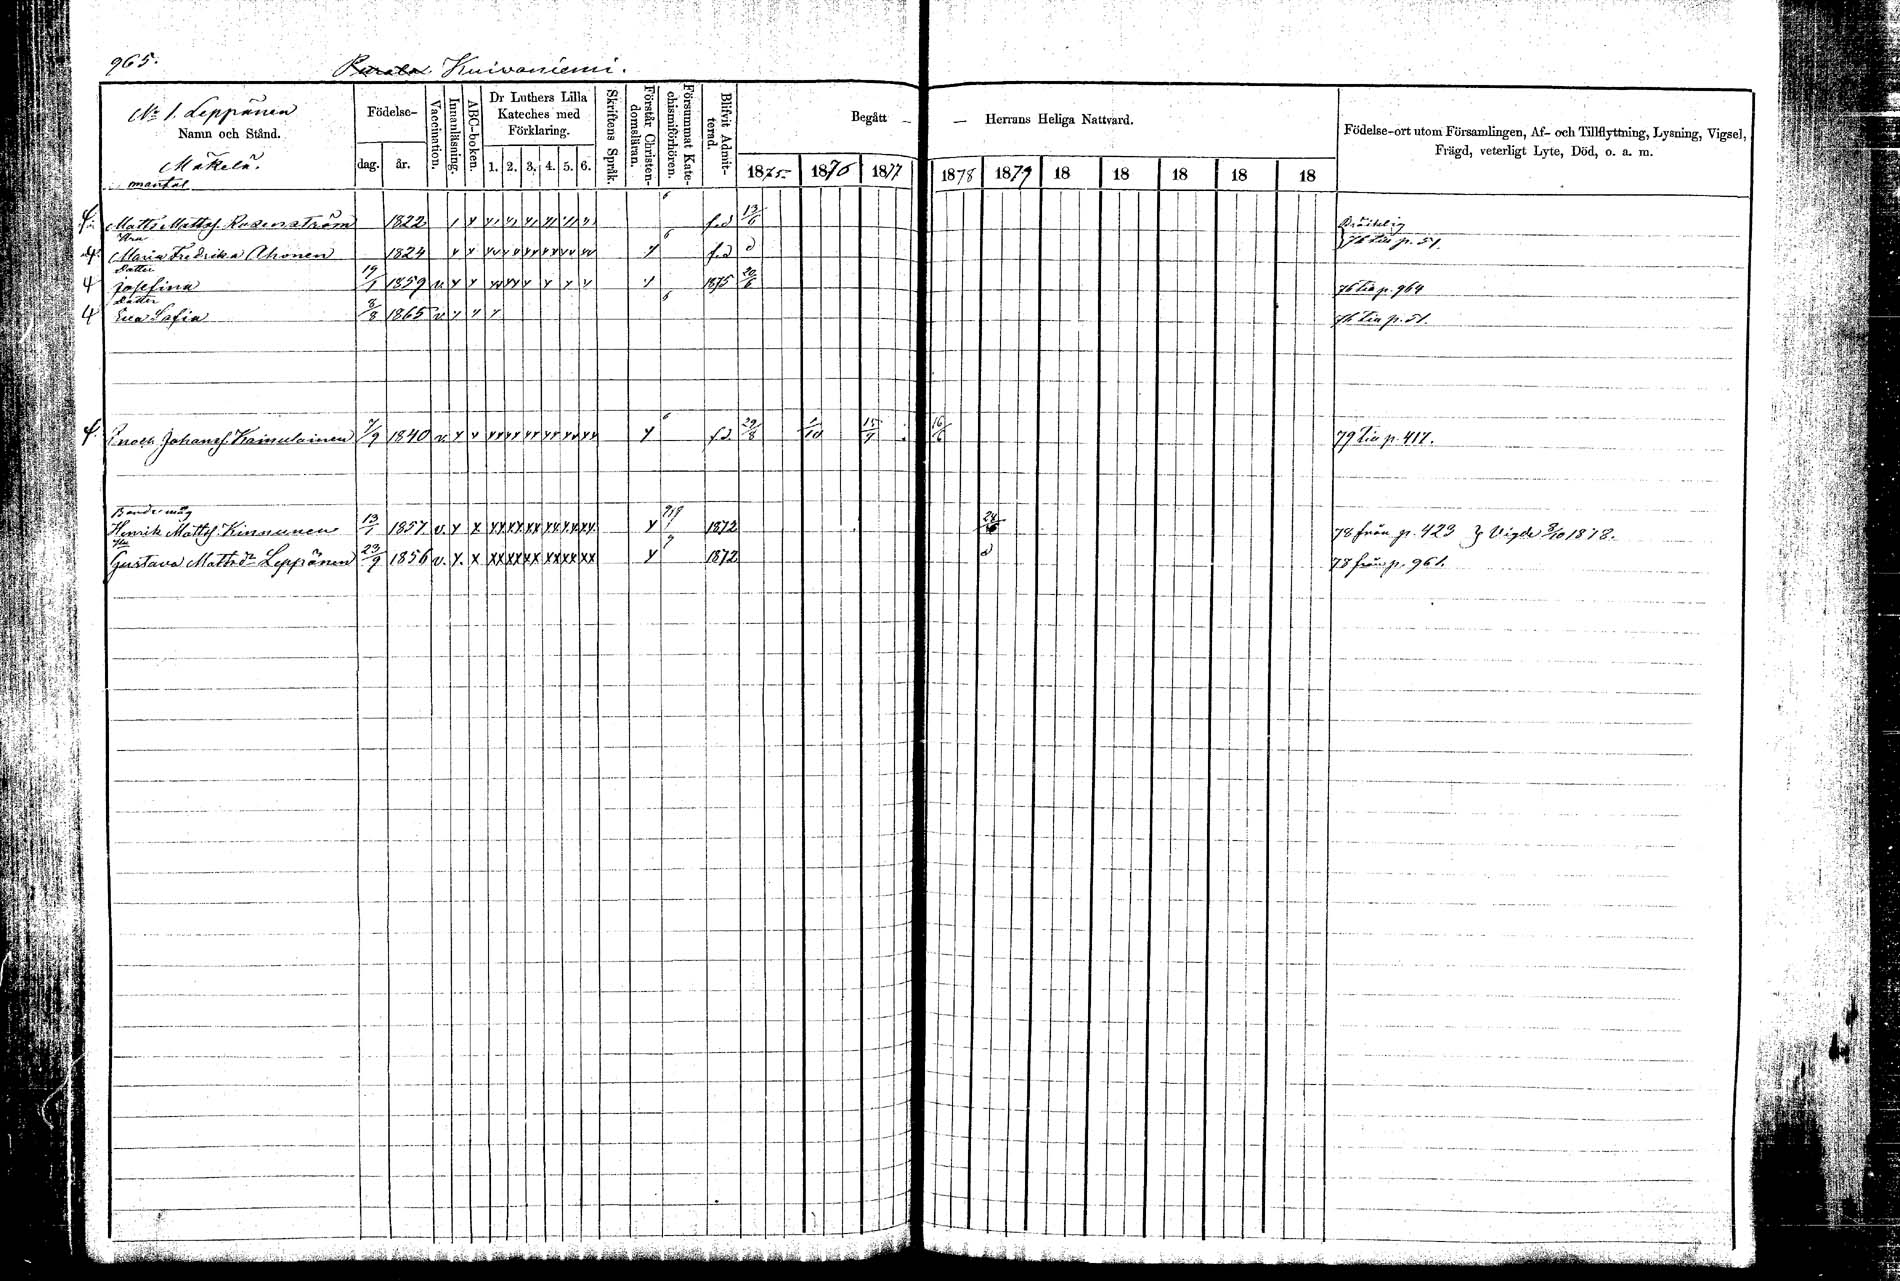 965.
Kuivaniemi.
No 1. Leppänen
Namn och Stånd.
Mäkelä.
mantal
Födelse-
dag. år.
Vaccination.
Innanläsning.
ABC-boken.
Dr Luthers Lilla Kateches med Förklaring.
1. 2. 3. 4. 5. 6.
Skriftens Språk.
Förstår Christendomsläran.
Försummat Katechismiförhören.
Blifvit Admitterad.
Begått — — Herrans Heliga Nattvard.
1875 1876 1877 1878 1879 18 18 18 18 18
Födelse-ort utom Församlingen, Af- och Tillflyttning, Lysning, Vigsel,
Frägd, veterligt Lyte, Död, o. a. m.
Matts Mattsf. Rosenström 1822 f.d 13/6 Bräcklig
Maria Fredrika Ahonen 1824 f.d d 76 till p. 51.
Datter
Josefina 19/1 1859 v. 1875 20/6 76 till p. 964
Datter
Eva Sofia 8/8 1865 v. 76 till p. 51.
Enoch Johansf. Kainulainen 7/9 1840 v. f.d. 29/8 1/10 15/9 16/6 79 till p. 417.
Bondemåg
Henrik Mattsf. Kinnunen 13/1 1857. v. 1872 24/6 78 från p. 423 } Vigde 8/10 1878.
Hu
Gustava Mattsdr Leppänen 23/9 1856 v. 1872 d 78 från p. 961.